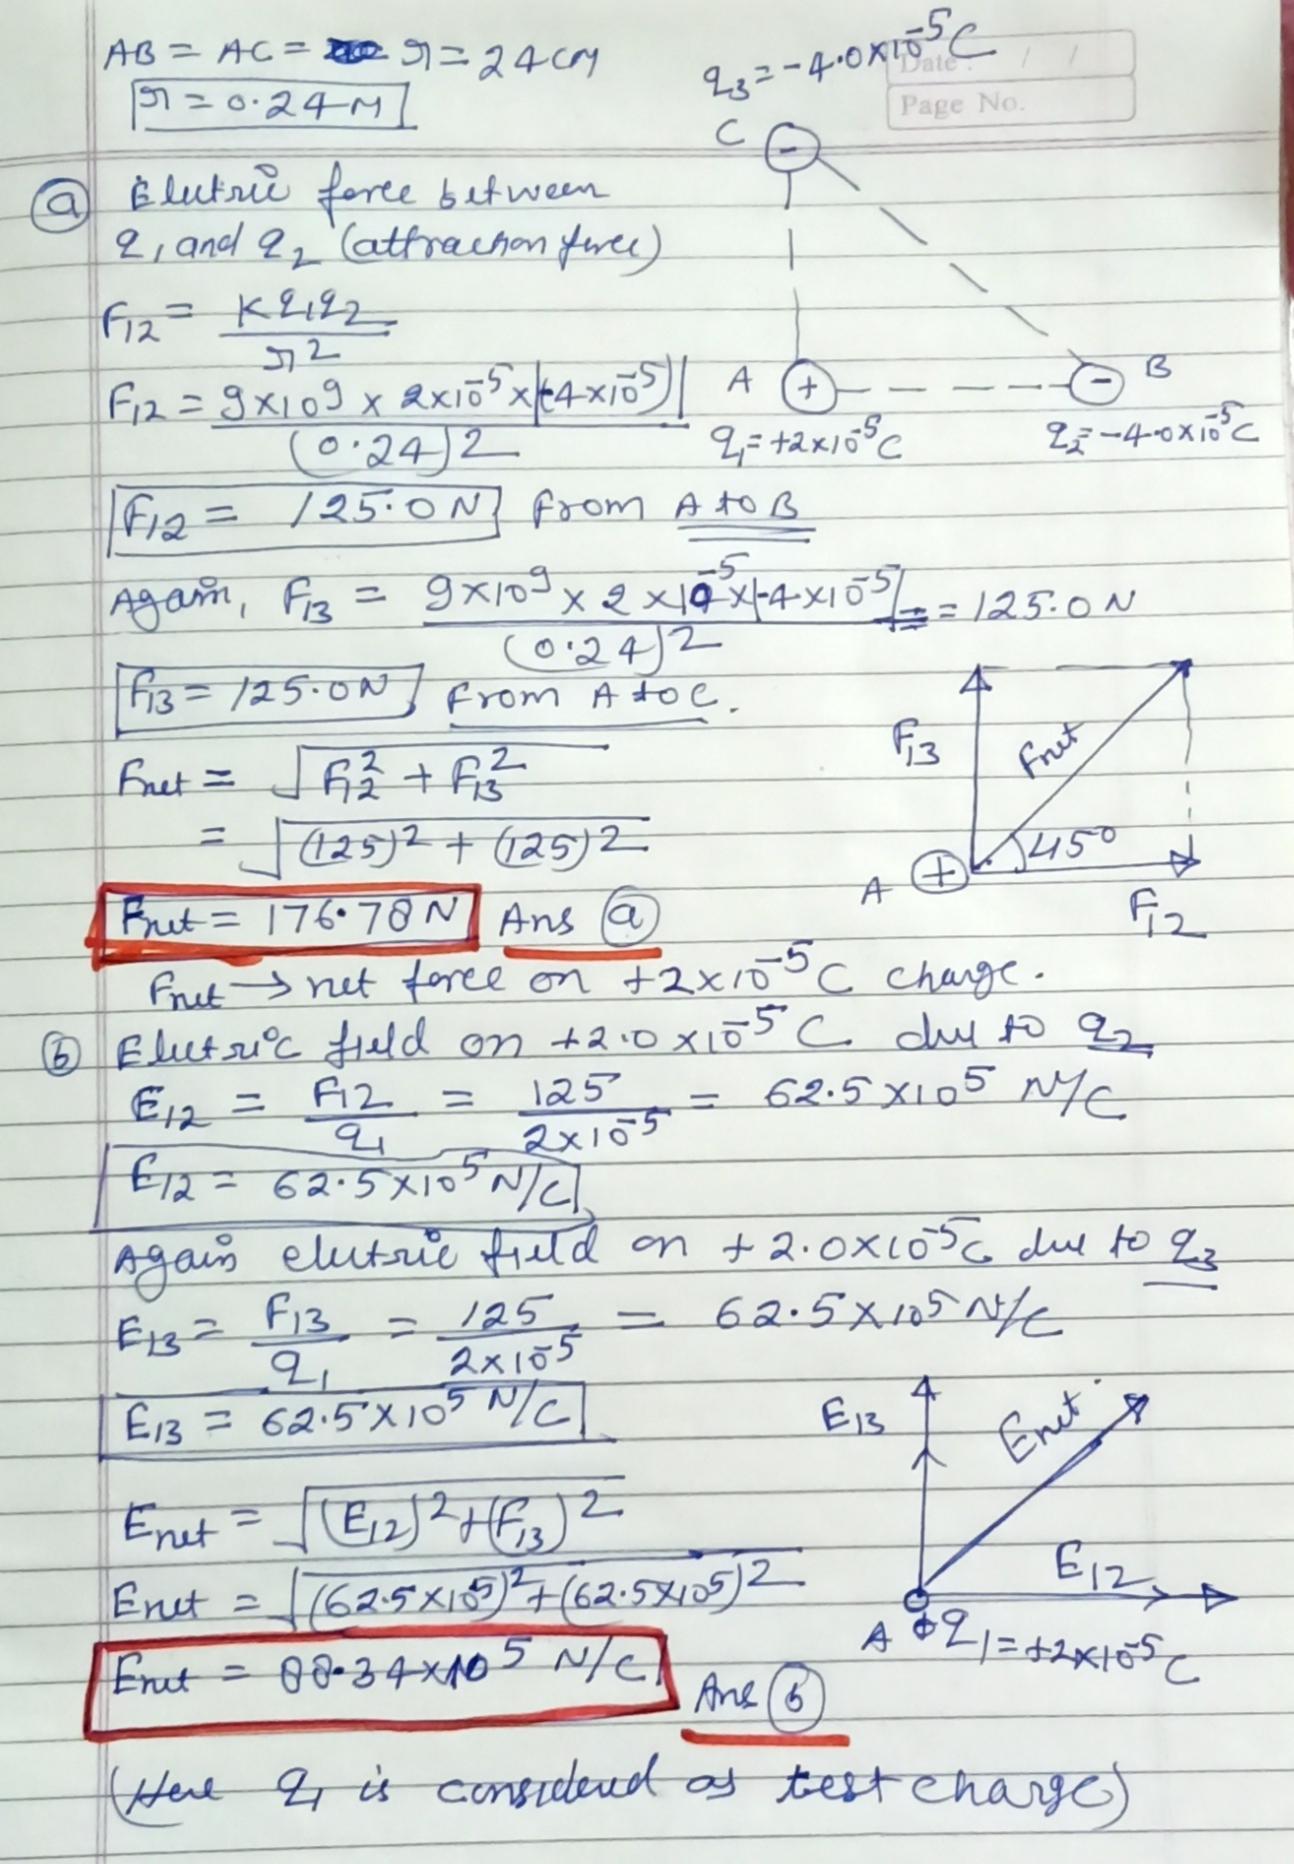 AB = AC = r = 24 cm
r = 0.24 m
Date : / /
Page No.
q3 = -4.0×10^-5 C
C
-
(a) Electric force between
q1 and q2 (attraction force)
F12 = Kq1q2 / r^2
F12 = 9×10^9 × 2×10^-5 × |(-4×10^-5)| / (0.24)^2
A + - B
q1 = +2×10^-5 C q2 = -4.0×10^-5 C
F12 = 125.0 N From A to B
Again, F13 = 9×10^9 × 2×10^-5 × |-4×10^-5| / (0.24)^2 = 125.0 N
F13 = 125.0 N From A to C.
Fnet = √(F12^2 + F13^2)
= √((125)^2 + (125)^2)
F13 Fnet
45°
A + F12
Fnet = 176.78 N Ans (a)
Fnet → net force on +2×10^-5 C charge.
(b) Electric field on +2.0×10^-5 C due to q2
E12 = F12 / q1 = 125 / 2×10^-5 = 62.5×10^5 N/C
E12 = 62.5×10^5 N/C
Again electric field on +2.0×10^-5 C due to q3
E13 = F13 / q1 = 125 / 2×10^-5 = 62.5×10^5 N/C
E13 = 62.5×10^5 N/C
E13 Enet
Enet = √((E12)^2 + (F13)^2)
Enet = √((62.5×10^5)^2 + (62.5×10^5)^2)
E12
A q1 = +2×10^-5 C
Enet = 88.34×10^5 N/C Ans (b)
(Here q1 is considered as test charge)